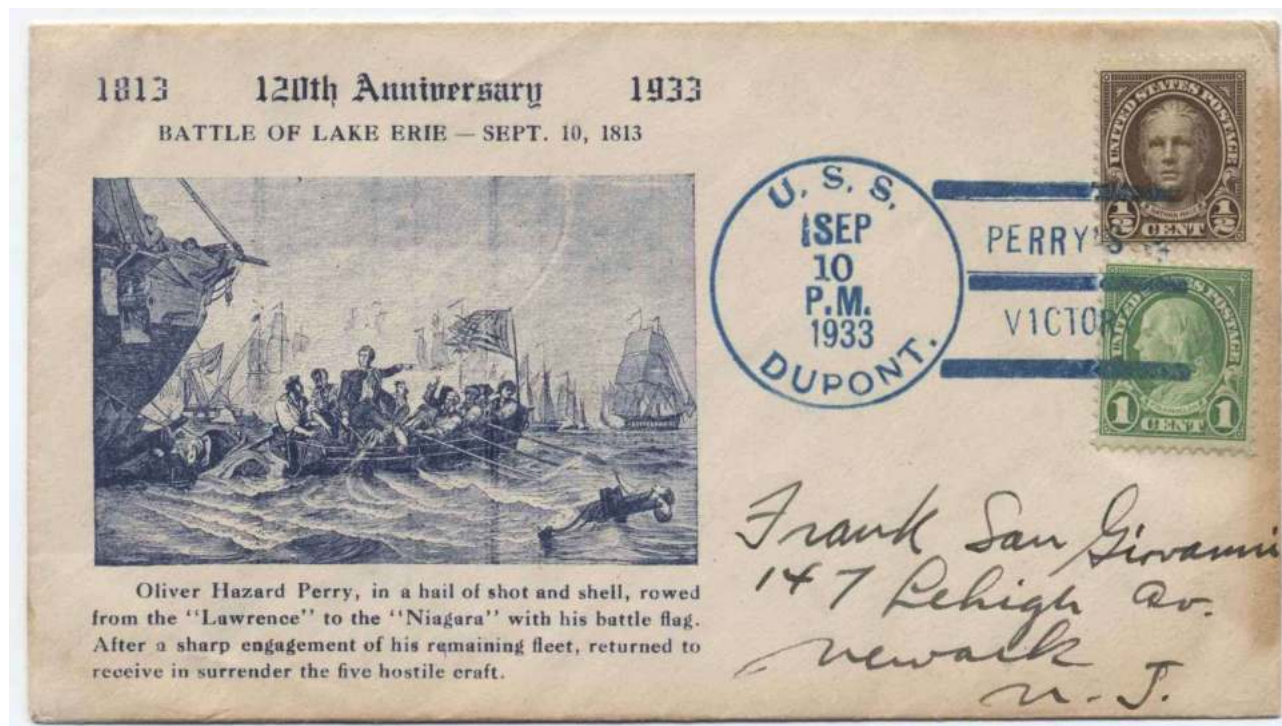 1813 120th Anniversary 1933
BATTLE OF LAKE ERIE — SEPT. 10, 1813
Oliver Hazard Perry, in a hail of shot and shell, rowed
from the "Lawrence" to the "Niagara" with his battle flag.
After a sharp engagement of his remaining fleet, returned to
receive in surrender the five hostile craft.
U. S. S.
SEP
10
P.M.
1933
DUPONT.
PERRY'S
VICTOR
UNITED STATES POSTAGE
½ ½
CENT
UNITED STATES POSTAGE
1 1
CENT
Frank San Giovanni
147 Lehigh Av.
Newark
N. J.